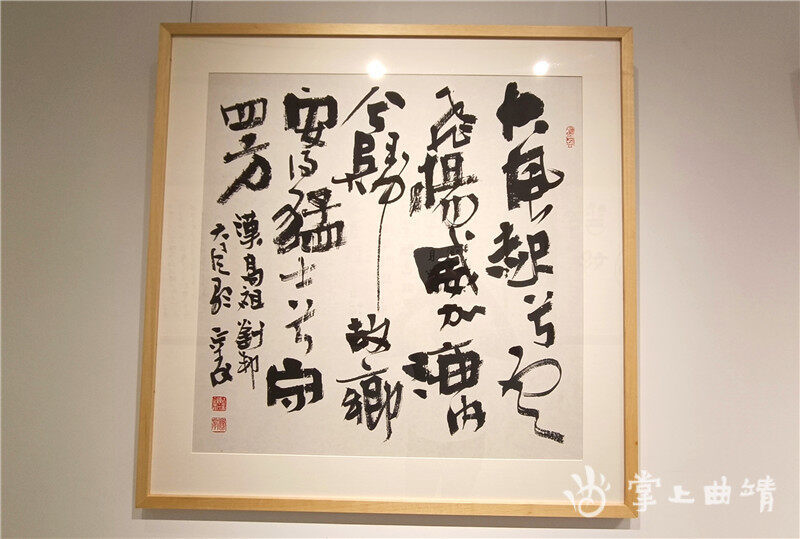 大风起兮云
飞扬威加海内
兮归故鄉
安得猛士兮守
四方
漢高祖劉邦
大风歌
掌上曲靖